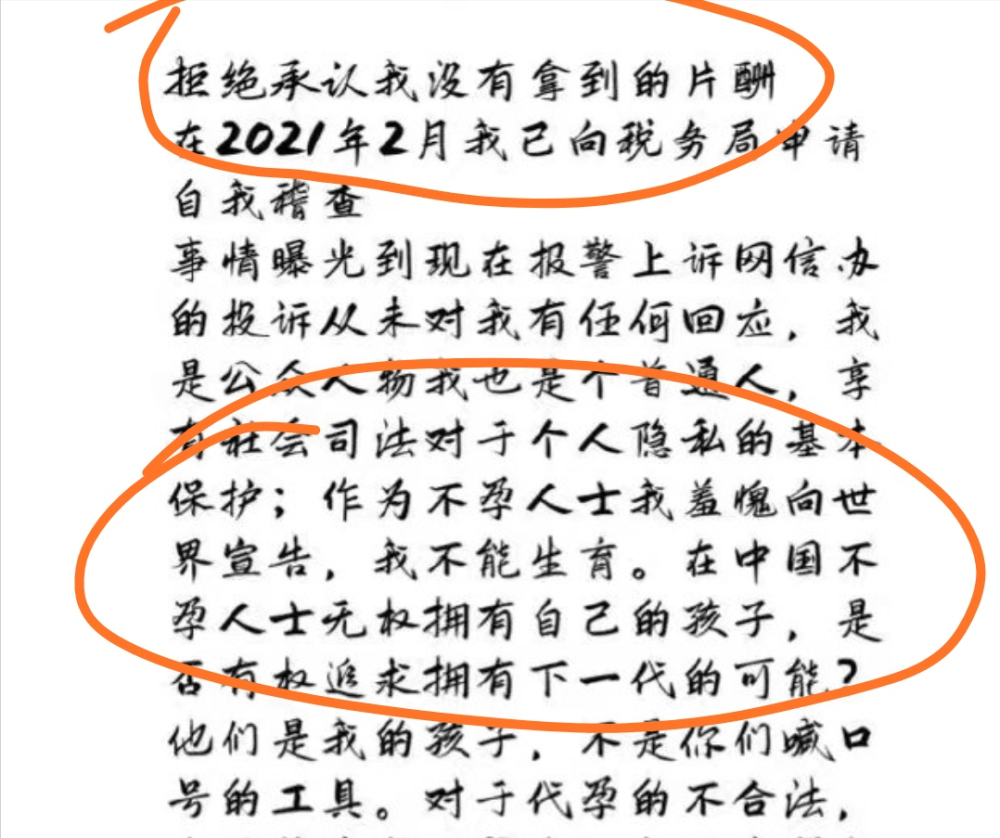 拒绝承认我没有拿到的片酬
在2021年2月我已向税务局申请
自我稽查
事情曝光到现在报警上诉网信办
的投诉从未对我有任何回应，我
是公众人物我也是个普通人，享
有社会司法对于个人隐私的基本
保护；作为不孕人士我羞愧向世
界宣告，我不能生育。在中国不
孕人士无权拥有自己的孩子，是
否有权追求拥有下一代的可能？
他们是我的孩子，不是你们喊口
号的工具。对于代孕的不合法，